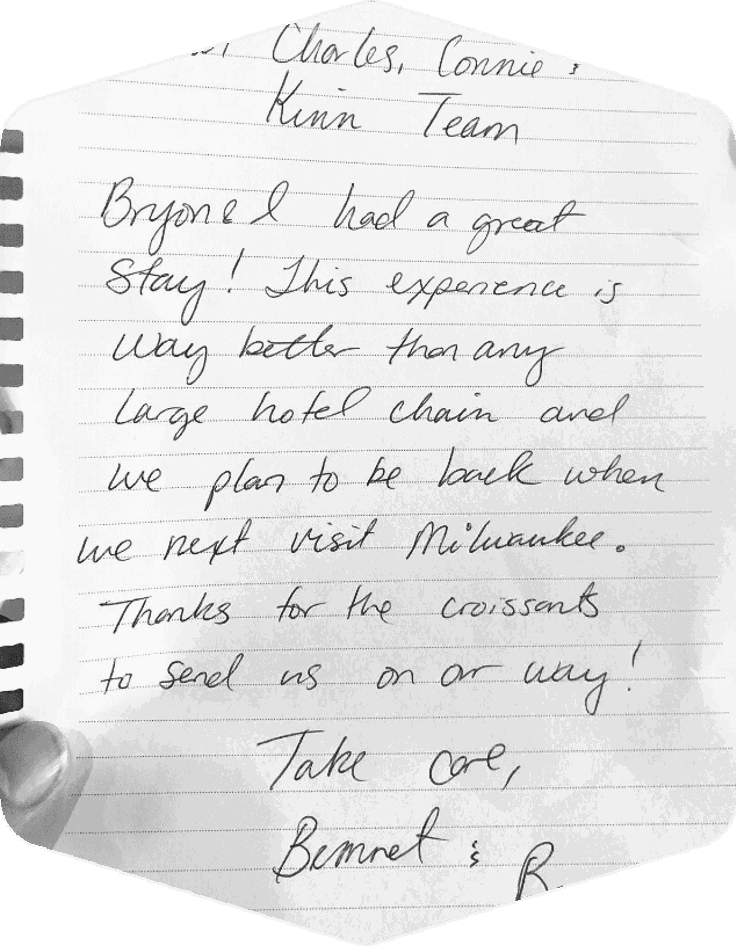 Charles, Connie &
Kinn Team
Bryon & I had a great
stay! This experience is
way better than any
large hotel chain and
we plan to be back when
we next visit Milwaukee.
Thanks for the croissants
to send us on or way!
Take care,
Bemnet & B